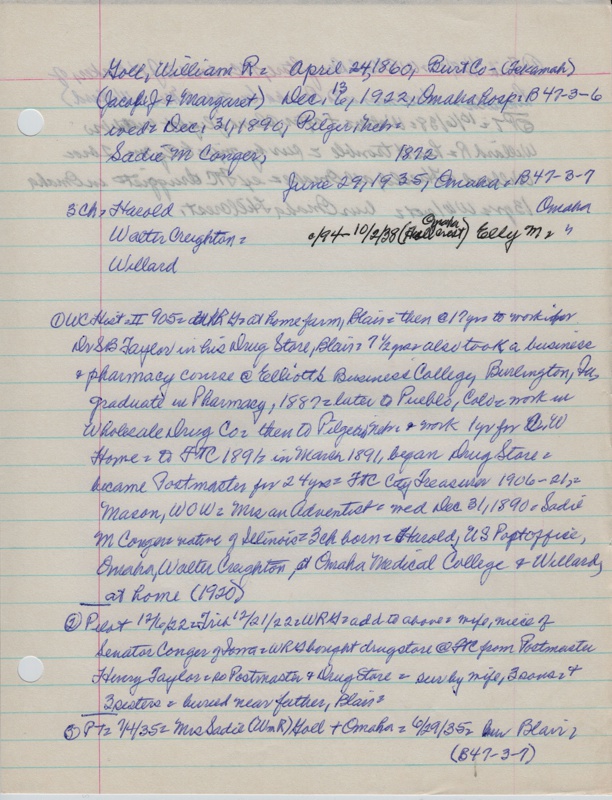 Goll, William R = April 24, 1860, Burt Co - (Tekamah)
(Jacob J & Margaret) Dec, 13 6, 1922, Omaha Hosp: B47-3-6
wed = Dec, 31, 1890, Pilger, Neb =
Sadie M Conger, 1872
June 29, 1935, Omaha = B47-3-7
3 ch = Harold Omaha
Walter Creighton = /94 - 10/2/38 (Omaha Hillcrest) Elly M = "
Willard
① WC Hist = II 905 = WRG = at home farm, Blair = then @ 17 yrs to work for
Dr SB Taylor in his Drug Store, Blair = 7 1/2 yrs = also took a business
& pharmacy course @ Elliott's Business College, Burlington, Ia,
graduate in Pharmacy, 1887 = later to Pueblo, Colo = work in
Wholesale Drug Co = then to Pilger, Neb = & work 1 yr for W
Home = to FTC 1891 = in March 1891, began Drug Store =
became Postmaster for 24 yrs = FTC City Treasurer 1906-21, =
Mason, WOW = Mrs an Adventist = wed Dec 31, 1890 = Sadie
M Conger = native of Illinois = 3 ch born = Harold, US Postoffice,
Omaha, Walter Creighton, @ Omaha Medical College & Willard,
at home (1920)
② Pilot 12/6/22 = Trib 12/21/22 = WRG = add to above = wife, niece of
Senator Conger of Iowa = WRG bought drugstore @ FTC from Postmaster
Henry Taylor = so Postmaster & Drug Store = sur by wife, 3 sons = &
3 sisters = buried near father, Blair =
③ PT = 7/4/35 = Mrs Sadie (Wm R) Goll + Omaha = 6/29/35 = bur Blair,
(B47-3-7)